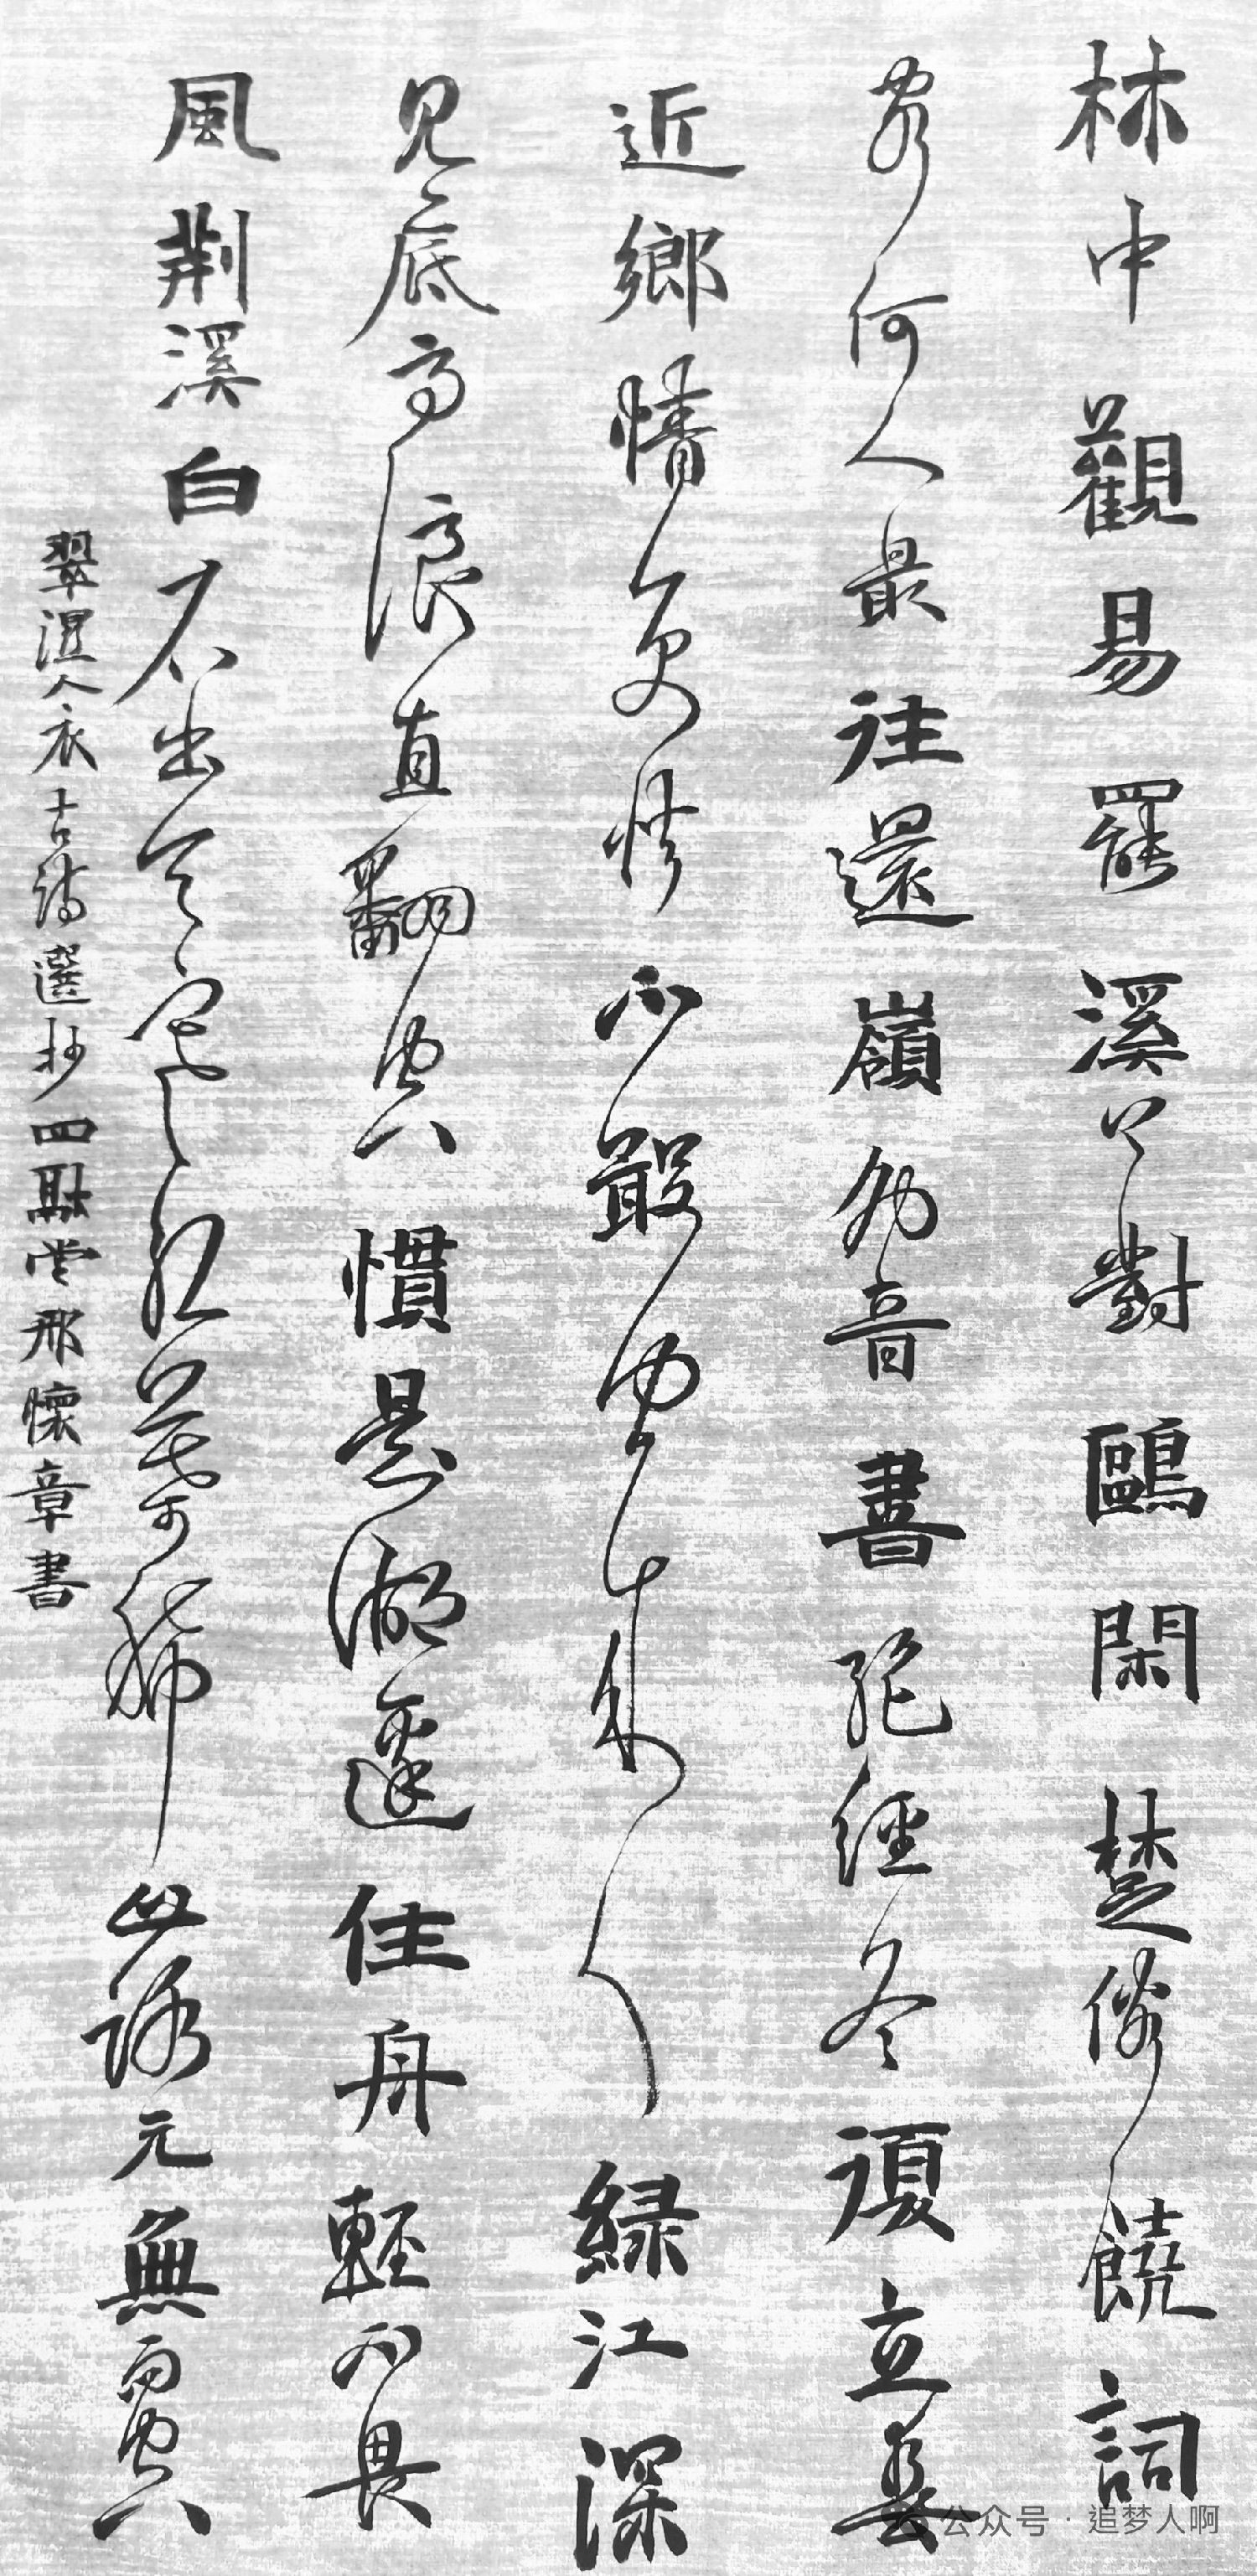 林中觀易罷溪上對鷗閑楚俗饒詞
客何人最往還嶺外音書絕經冬復立春
近鄉情更怯不敢問來人綠江深
見底高浪直翻空慣是湖邊住舟輕不畏
風荊溪白石出天寒紅葉稀山路元無雨空
翠濕人衣古詩選抄四堂邢懷章書
公众号 · 追梦人啊